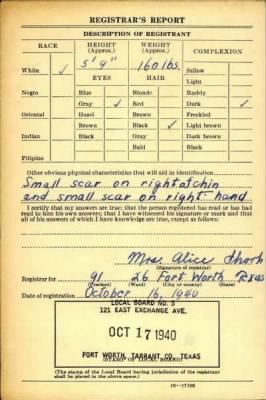 REGISTRAR'S REPORT
DESCRIPTION OF REGISTRANT
RACE HEIGHT (Approx.) WEIGHT (Approx.) COMPLEXION
5' 9" 160 lbs. Sallow
White ✓ EYES HAIR Light
Negro Blue Blonde Ruddy
Gray ✓ Red Dark ✓
Oriental Hazel Brown Freckled
Brown Black ✓ Light brown
Indian Black Gray Dark brown
Bald Black
Filipino
Other obvious physical characteristics that will aid in identification
Small scar on right of chin
and small scar on right hand
I certify that my answers are true; that the person registered has read or has had
read to him his own answers; that I have witnessed his signature or mark and that
all of his answers of which I have knowledge are true, except as follows:
Mrs. Alice Short
(Signature of registrar)
Registrar for 91 26 Fort Worth Texas
(Precinct) (Ward) (City or county) (State)
Date of registration October 16, 1940
LOCAL BOARD NO. 5
121 EAST EXCHANGE AVE.
OCT 17 1940
FORT WORTH, TARRANT CO., TEXAS
(STAMP OF LOCAL BOARD)
(The stamp of the Local Board having jurisdiction of the registrant
shall be placed in the above space.)